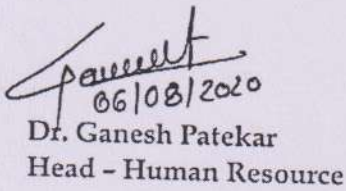 06/08/2020
Dr. Ganesh Patekar
Head – Human Resource